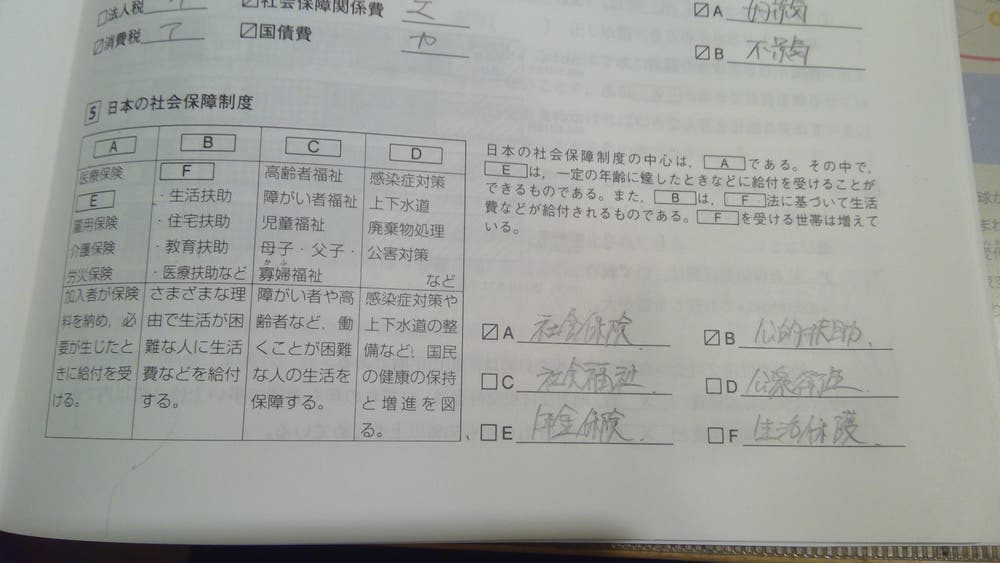 □法人税
☑社会保障関係費 エ
☑A 好景気
☑消費税 ア
☑国債費 カ
☑B 不景気
5 日本の社会保障制度
A B C D
医療保険
E
雇用保険
介護保険
労災保険
F
・生活扶助
・住宅扶助
・教育扶助
・医療扶助など
高齢者福祉
障がい者福祉
児童福祉
母子・父子・
かふ
寡婦福祉
感染症対策
上下水道
廃棄物処理
公害対策
など
加入者が保険
料を納め，必
要が生じたと
きに給付を受
ける。
さまざまな理
由で生活が困
難な人に生活
費などを給付
する。
障がい者や高
齢者など，働
くことが困難
な人の生活を
保障する。
感染症対策や
上下水道の整
備など，国民
の健康の保持
と増進を図
る。
日本の社会保障制度の中心は，Aである。その中で，
Eは，一定の年齢に達したときなどに給付を受けることが
できるものである。また，Bは，F法に基づいて生活
費などが給付されるものである。Fを受ける世帯は増えて
いる。
☑A 社会保険
☑B 公的扶助
□C 社会福祉
□D 公衆衛生
□E 年金保険
□F 生活保護